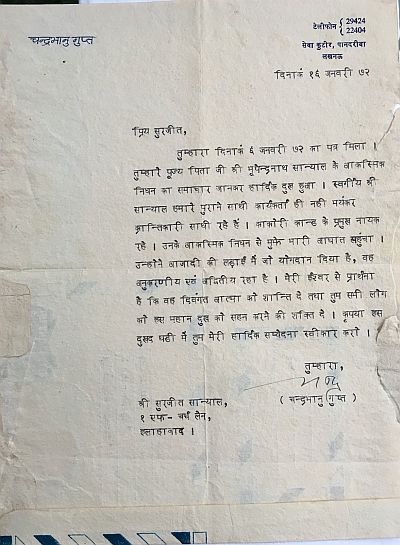 चन्द्रभानु गुप्त
टेलीफोन { 29424
22404
सेवा कुटीर, पानदरीबा
लखनऊ
दिनाकं १६ जनवरी ७२
प्रिय सुरजीत,
तुम्हारा दिनाकं ६ जनवरी ७२ का पत्र मिला ।
तुम्हारे पूज्य पिता जी श्री भूपेन्द्रनाथ सान्याल के आकस्मिक
निधन का समाचार जानकर हार्दिक दुख हुआ । स्वर्गीय श्री
सान्याल हमारे पुराने साथी कार्यकर्ता ही नही भयंकर
क्रान्तिकारी साथी रहे हैं । काकोरी कान्ड के प्रमुख नायक
रहे । उनके आकस्मिक निधन से मुझे भारी आघात पहुंचा ।
उन्होंने आजादी की लड़ाई में जो योगदान दिया है, वह
अनुकरणीय एवं अद्वितीय रहा है । मेरी ईश्वर से प्रार्थना
है कि वह दिवगंत आत्मा को शान्ति दे तथा तुम सभी लोग
को इस महान दुख को सहन करने की शक्ति दे । कृपया इस
दुखद घड़ी में तुम मेरी हार्दिक सम्वेदना स्वीकार करो ।
तुम्हारा,
( चन्द्रभानु गुप्त )
श्री सुरजीत सान्याल,
१ एफ- चर्च लेन,
इलाहाबाद ।